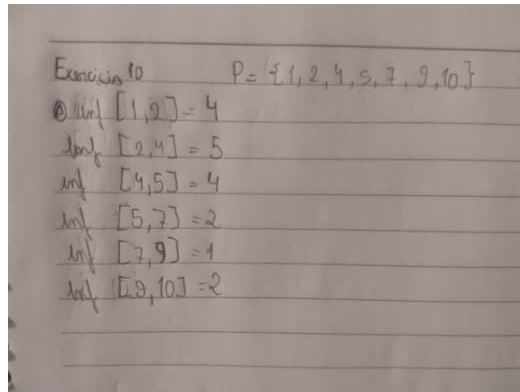 Exercicio 10 P = {1, 2, 4, 5, 7, 9, 10}
inf [1,2] = 4
inf [2,4] = 5
inf [4,5] = 4
inf [5,7] = 2
inf [7,9] = 1
inf [9,10] = 2